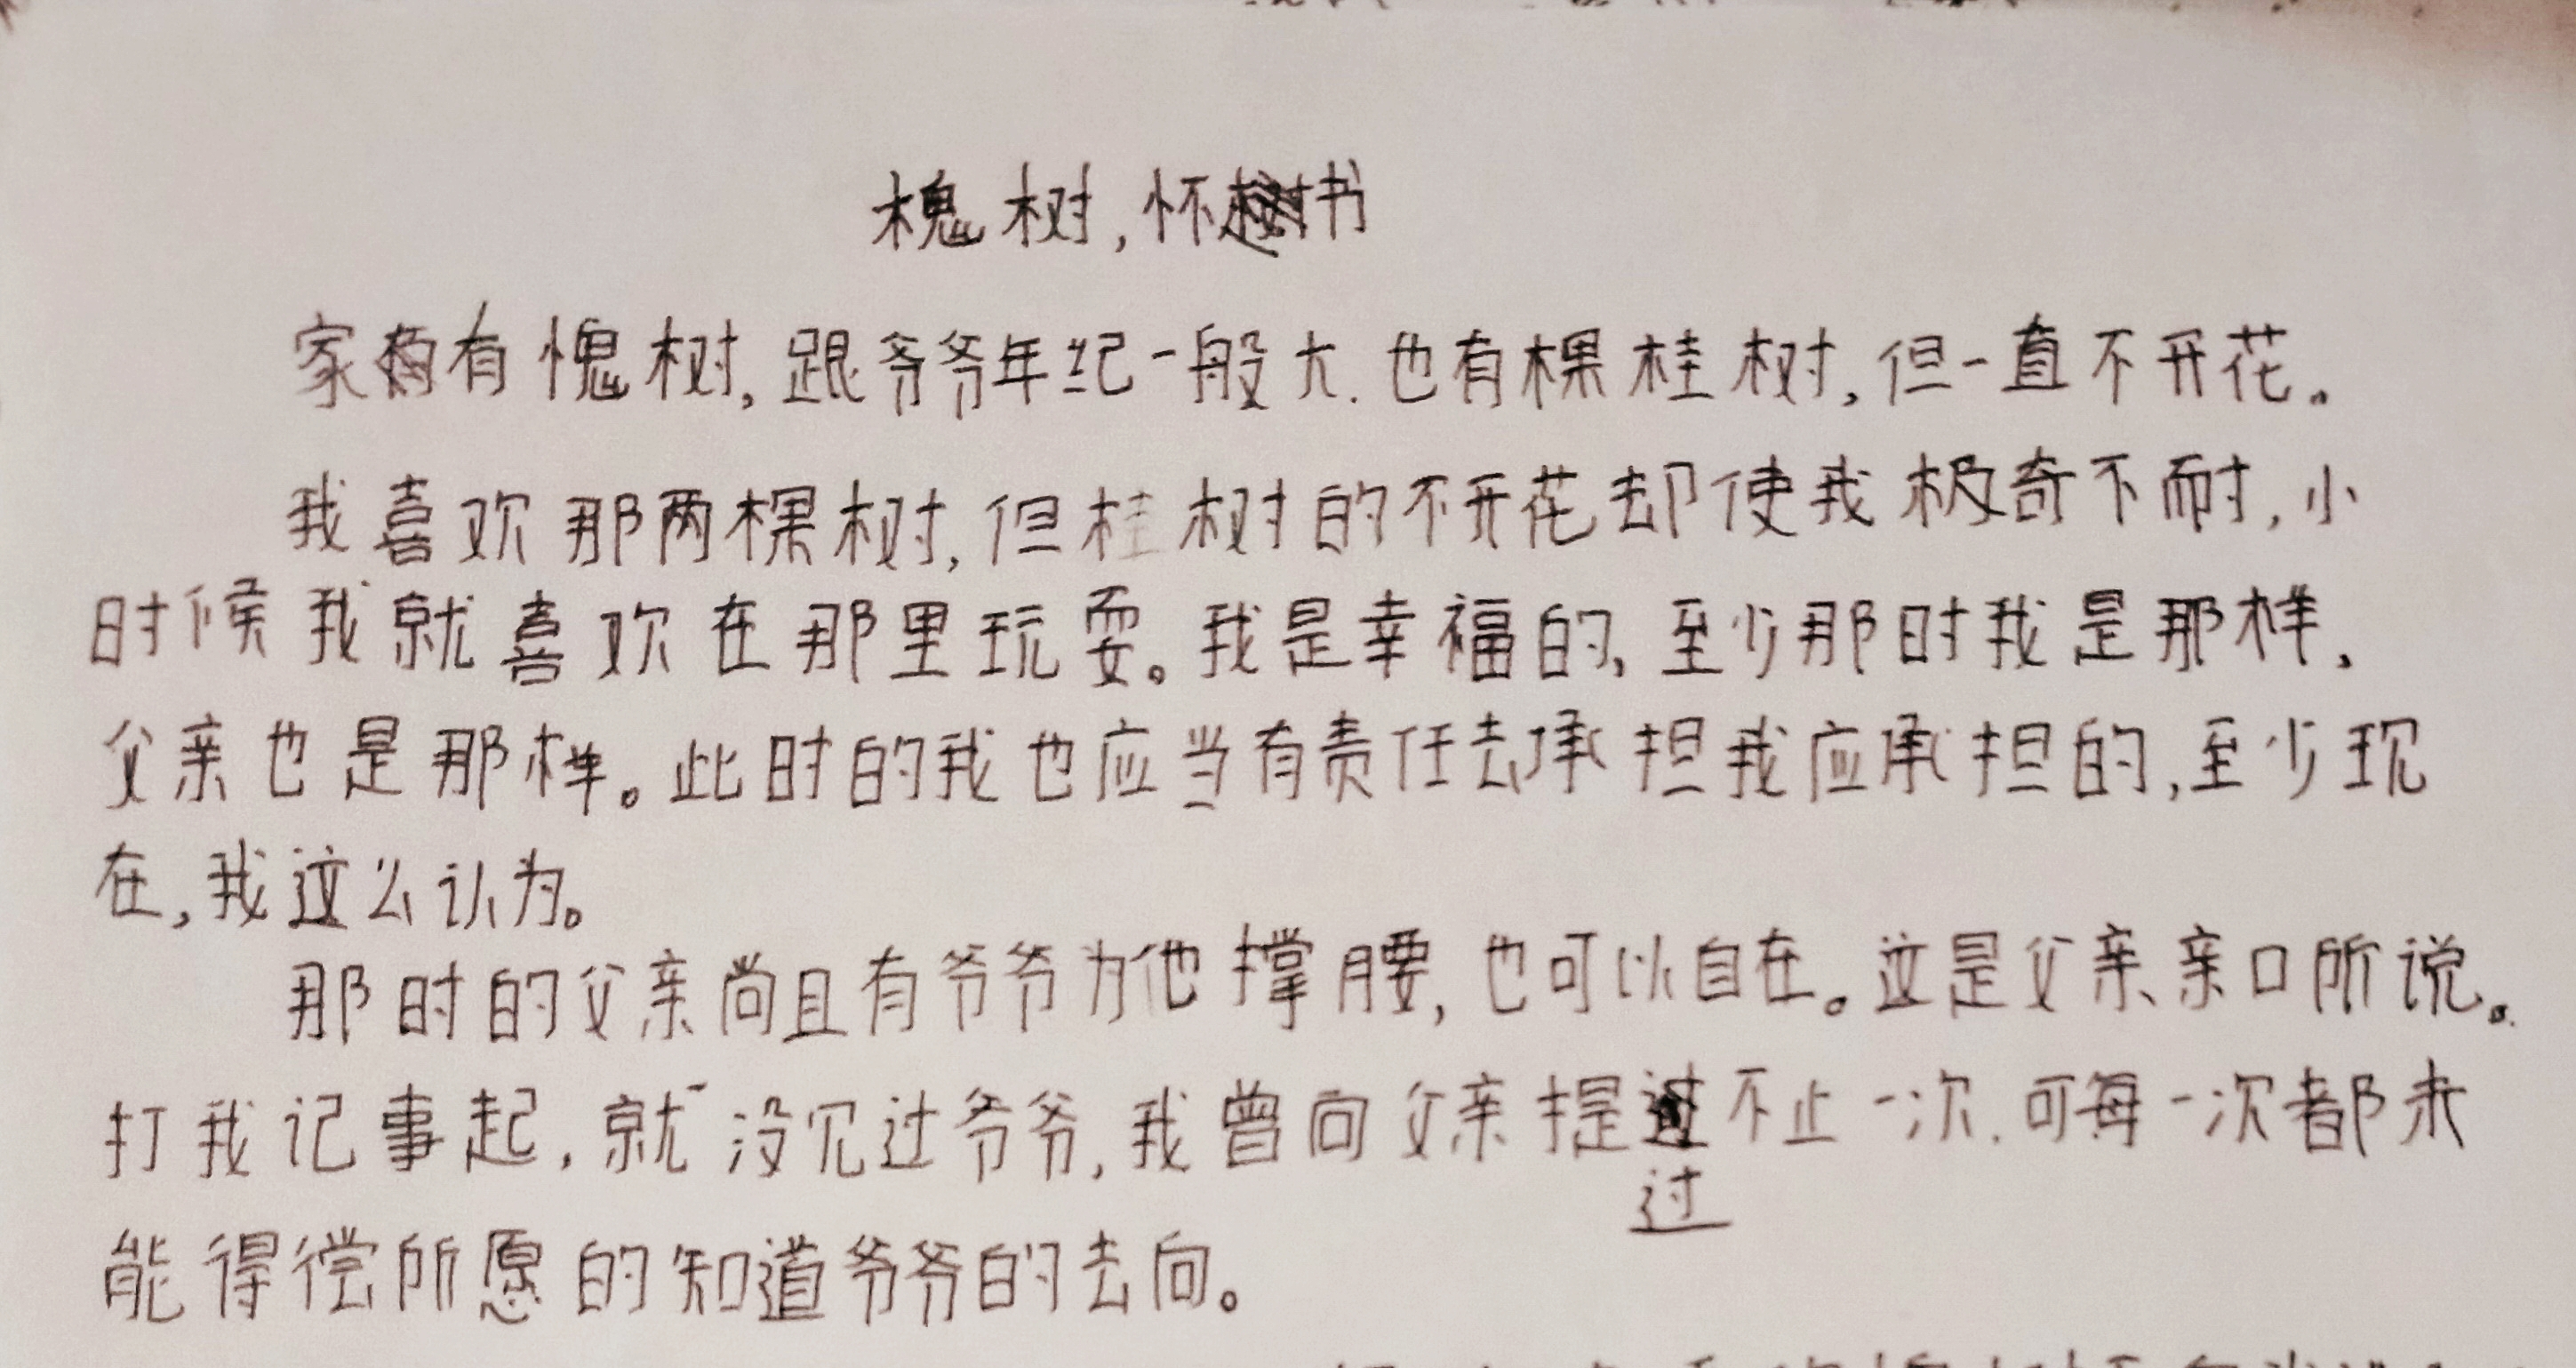 槐树,怀书
家有愧树,跟爷爷年纪一般大.也有棵桂树,但一直不开花。
我喜欢那两棵树,但桂树的不开花却使我极奇不耐,小
时候我就喜欢在那里玩耍。我是幸福的,至少那时我是那样,
父亲也是那样。此时的我也应当有责任去承担我应承担的,至少现
在,我这么认为。
那时的父亲尚且有爷爷为他撑腰,也可以自在。这是父亲亲口所说。
打我记事起,就没见过爷爷,我曾向父亲提过不止一次.可每一次都未
能得偿所愿的知道爷爷的去向。